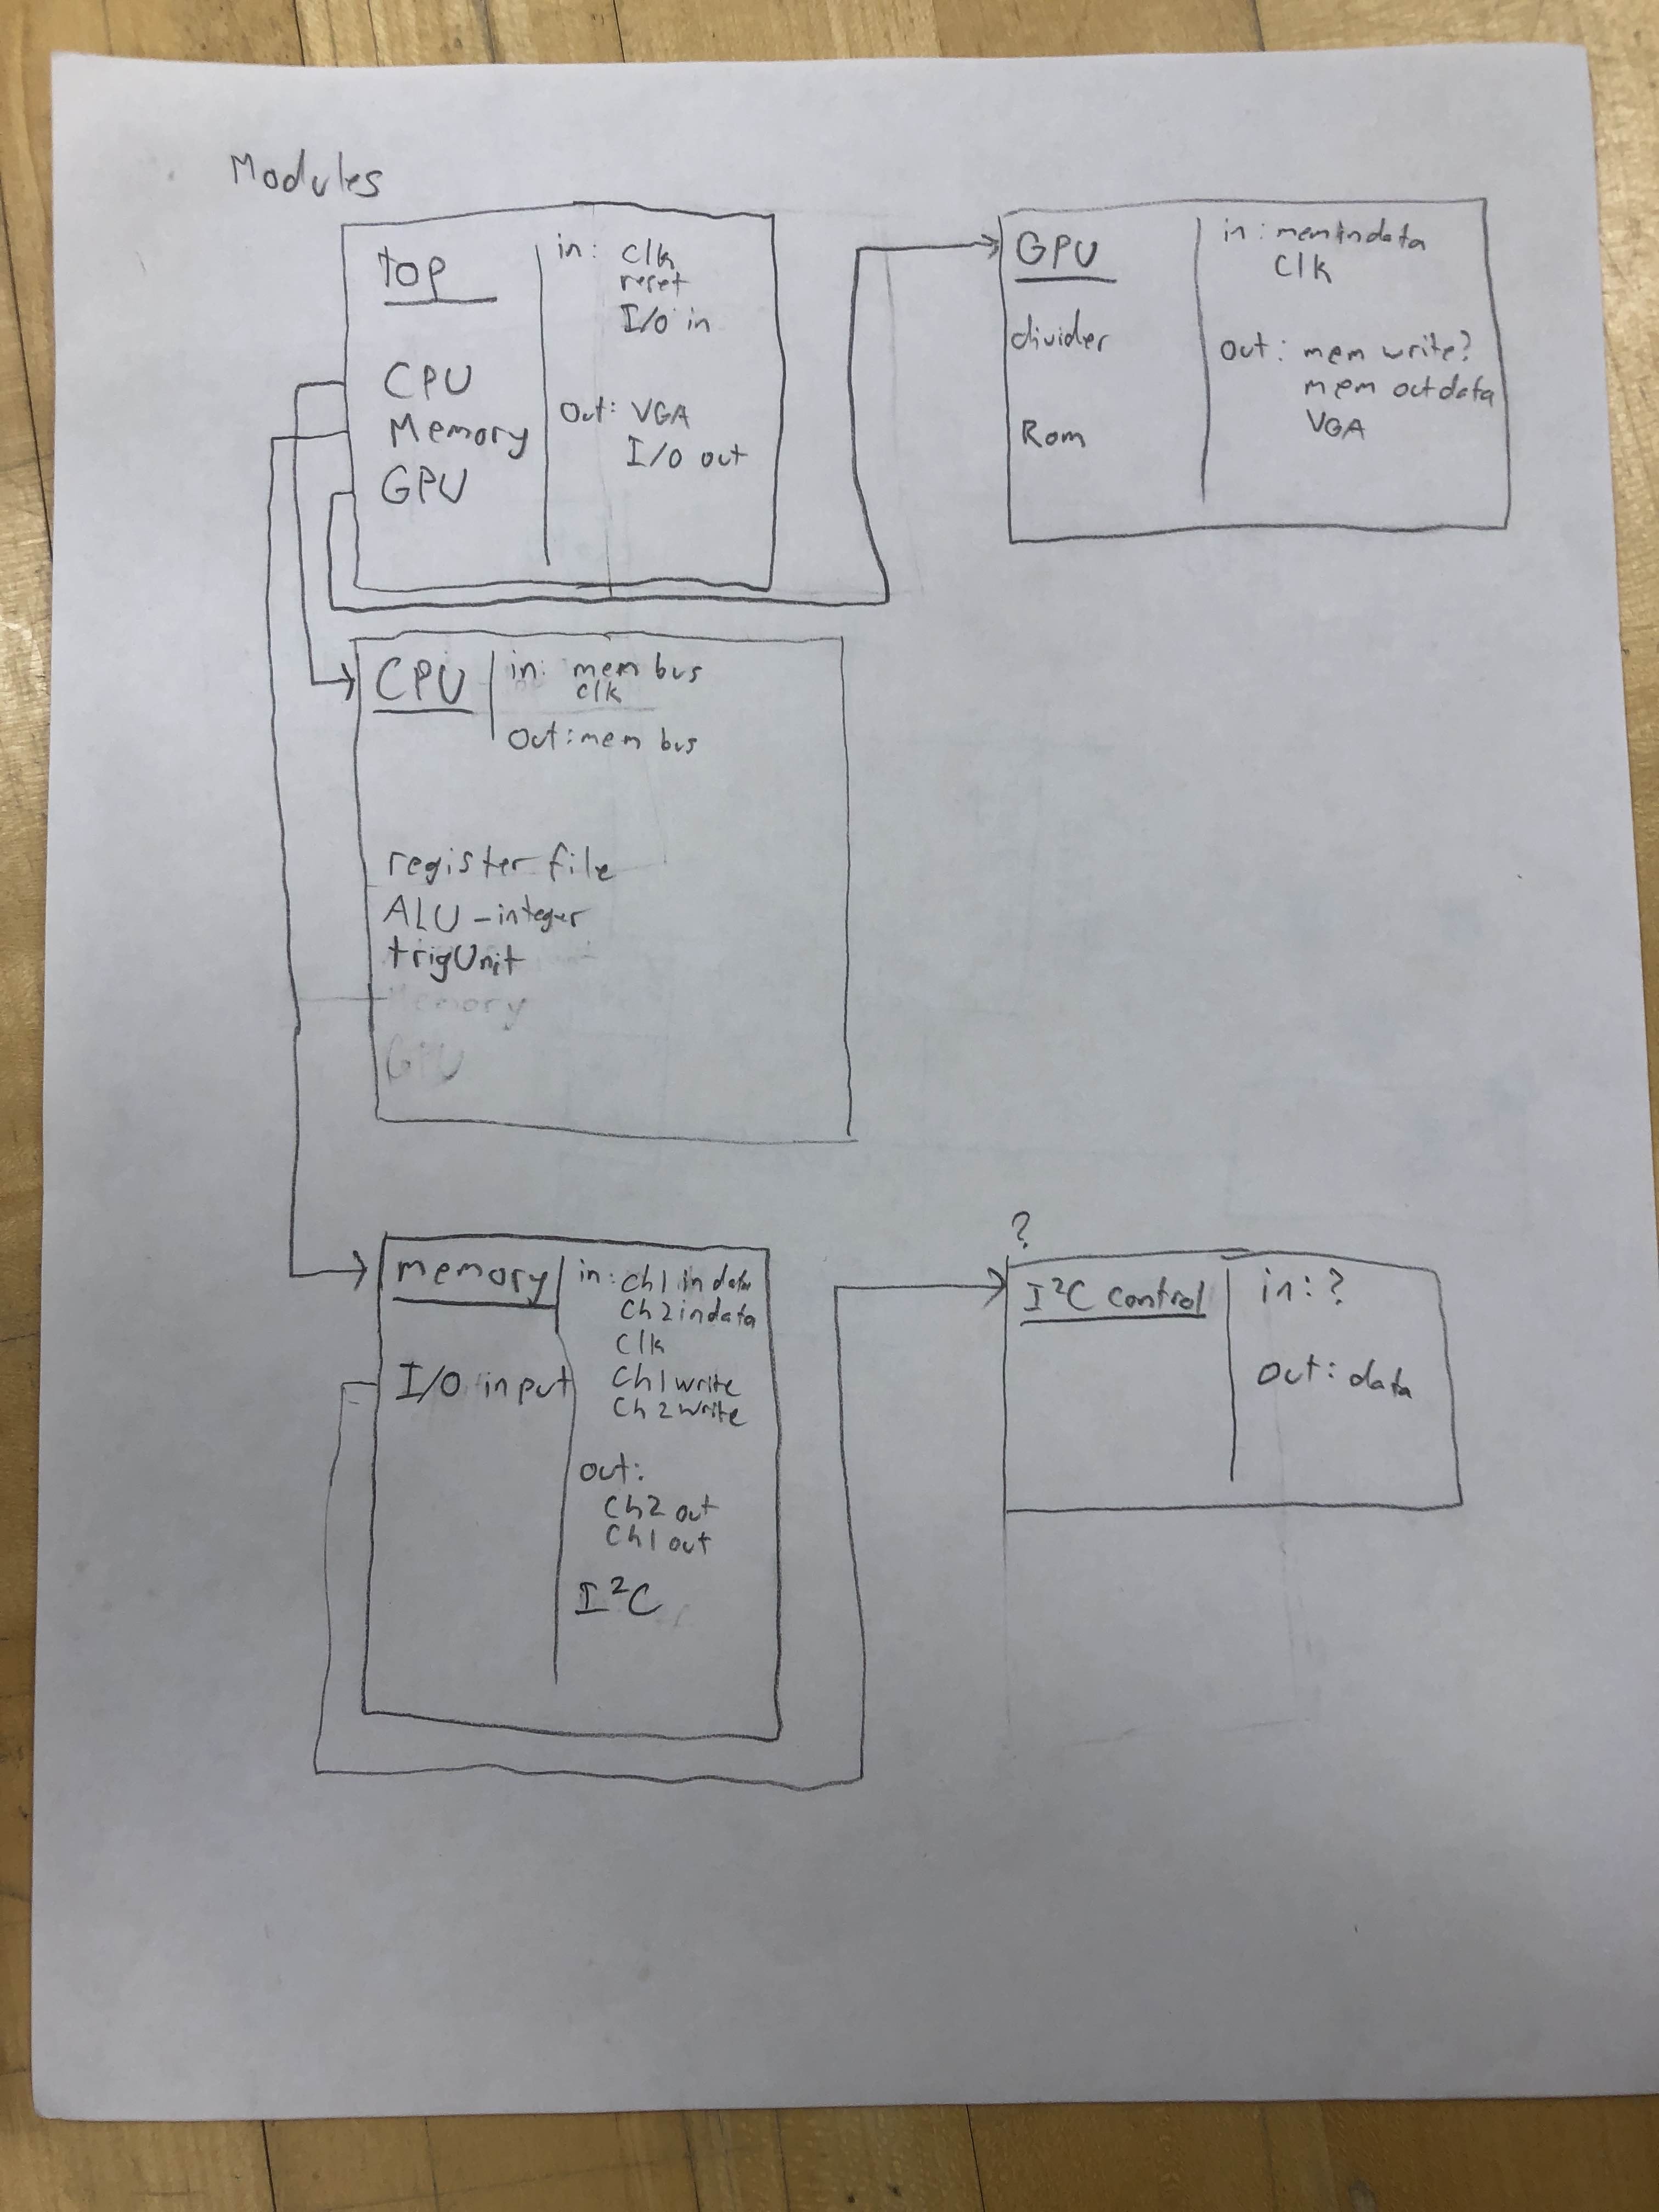 Modules
top
CPU
Memory
GPU
in: clk
reset
I/O in
Out: VGA
I/O out
GPU
divider
Rom
in: memindata
clk
Out: mem write?
mem outdata
VGA
CPU
in: mem bus
clk
Out: mem bus
register file
ALU - integer
trigUnit
Memory
GPU
memory
I/O input
in: ch1 in data
Ch2 indata
Clk
Ch1 write
Ch2 write
out:
Ch2 out
Ch1 out
I²C
?
I²C control
in: ?
Out: data